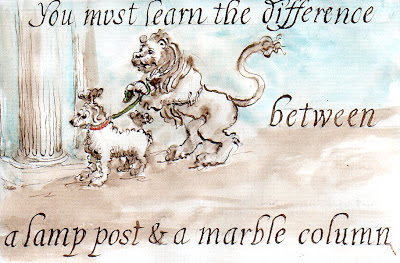 You mvst learn the difference
between
a lamp post & a marble column